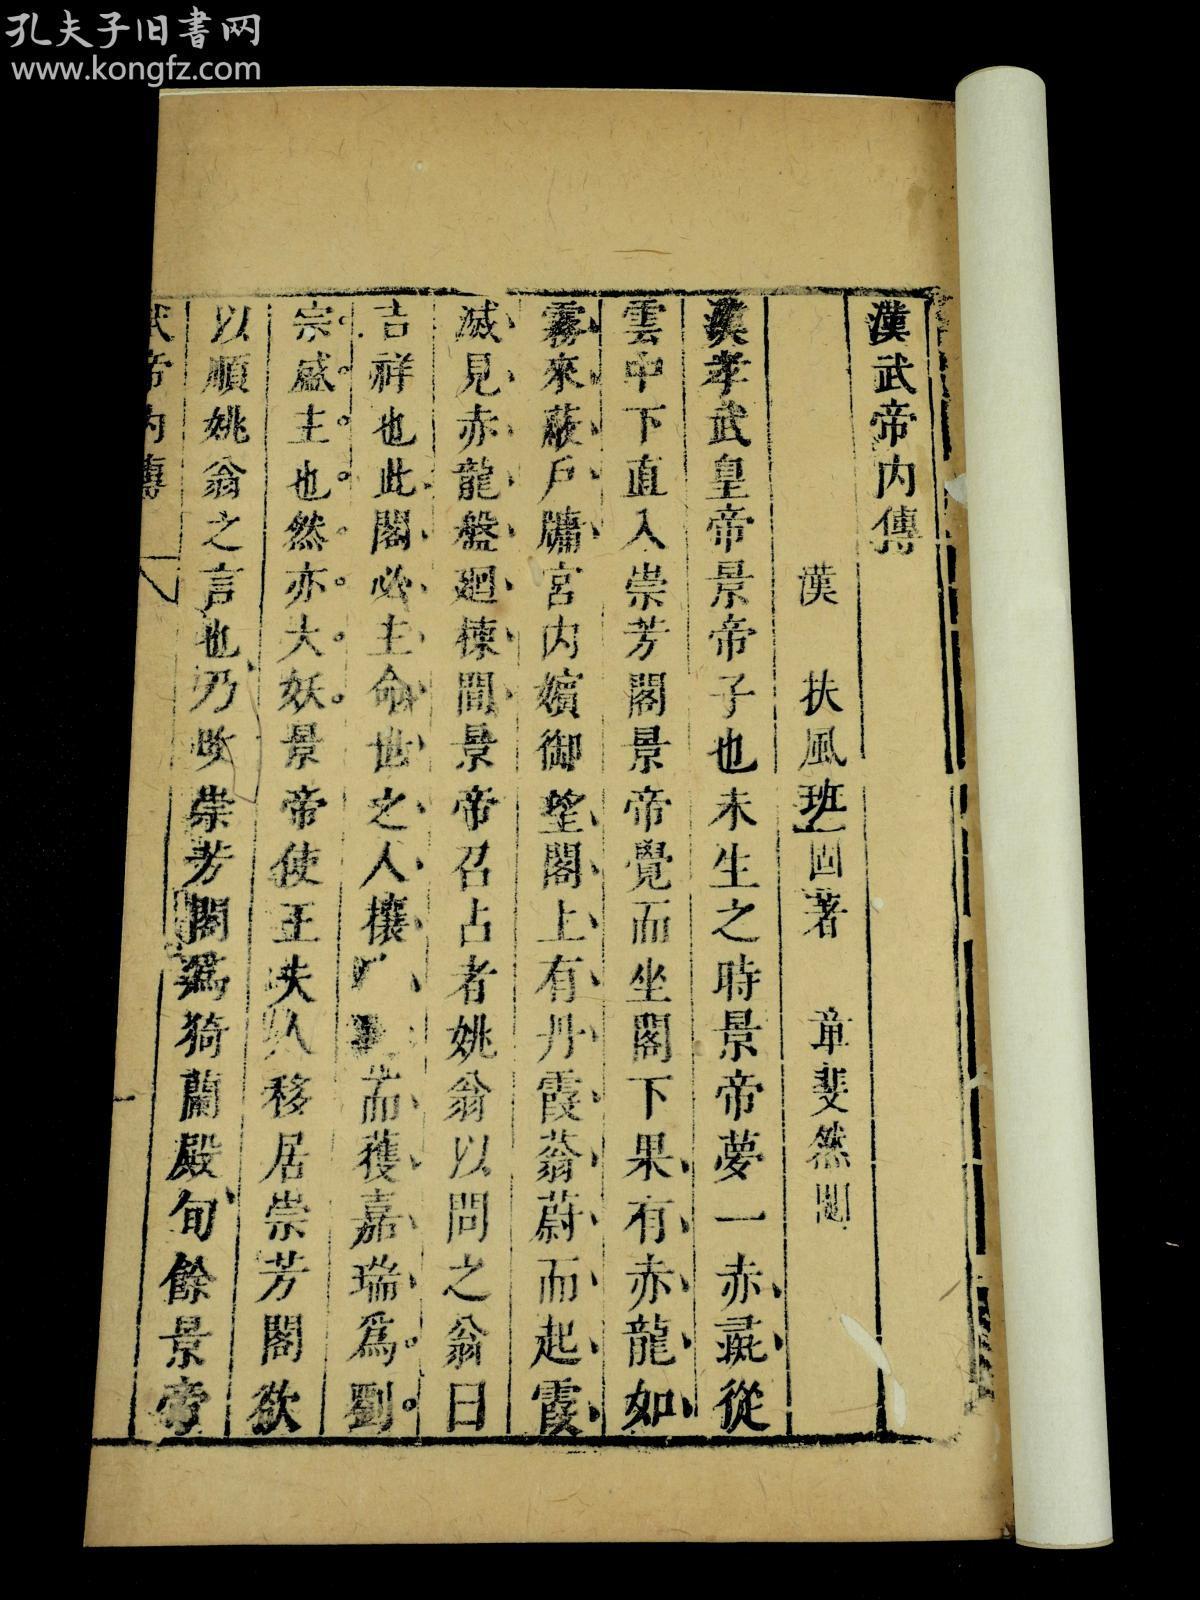 孔夫子旧書网
www.kongfz.com
漢武帝内傳
漢 扶風班固著 章斐然閱
漢孝武皇帝景帝子也未生之時景帝夢一赤彘從
雲中下直入崇芳閣景帝覺而坐閣下果有赤龍如
霧來蔽戶牖宮内嬪御望閣上有丹霞蓊蔚而起霞
滅見赤龍盤廻棟間景帝召占者姚翁以問之翁曰
吉祥也此閣必主命世之人攘而獲嘉瑞爲劉
宗盛主也然亦大妖景帝使王夫人移居崇芳閣欲
以順姚翁之言也乃改崇芳閣爲猗蘭殿旬餘景帝
武帝内傳